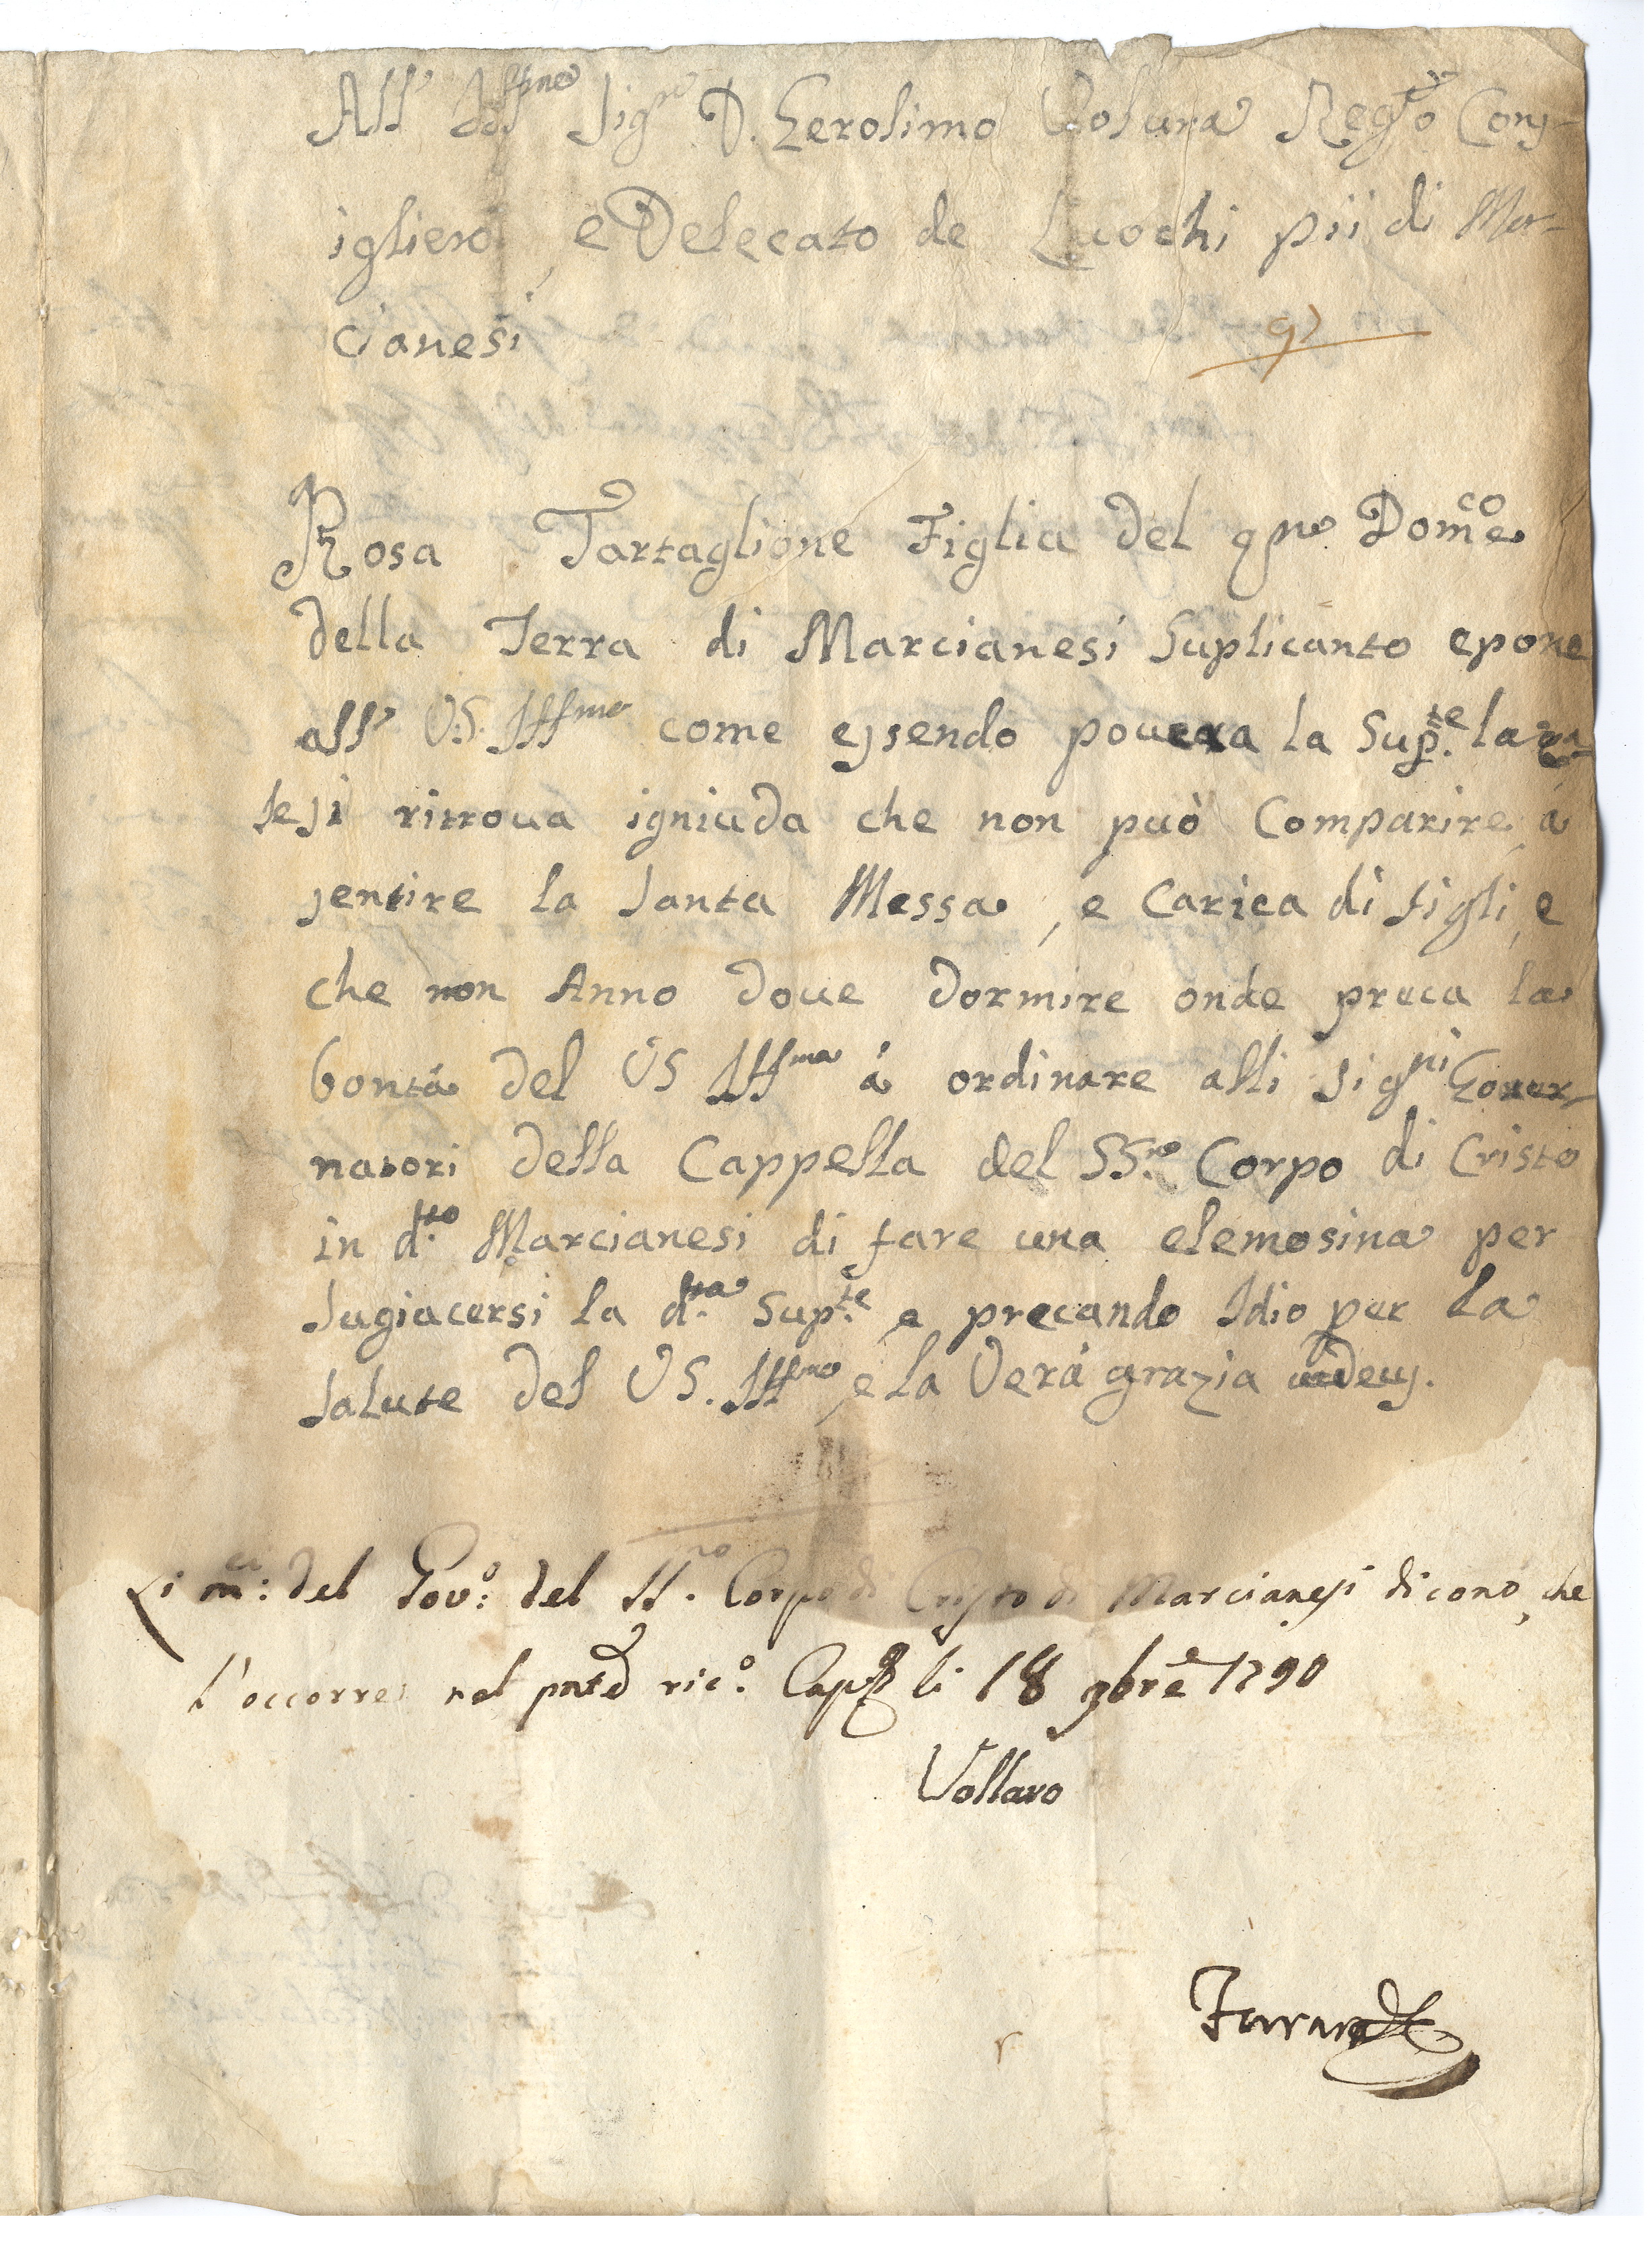 All' Ill.mo Sig.re D. Gerolimo Reg.o Cons-
igliero, e Delecato de Luochi pii di Mar-
cianesi
Rosa Tartaglione Figlia del q.m Dom.co
della Terra di Marcianesi Suplicanto epone
all' V.S. Ill.mo come essendo pouera la Sup.te la
si ritroua igniuda che non può Comparire, á
sentire la Santa Messa, e Carica di figli, e
che non Anno doue dormire onde preca la
bontá del VS Ill.ma á ordinare alli Sig.ri Gouer-
natori della Cappella del SS.mo Corpo di Cristo
in d.tto Marcianesi di fare una elemosina per
Sugiacersi la d.tta Sup.te e precando Idio per la
Salute del VS. Ill.mo, e la Verá grazia ut deus.
Li m.ci del Gov.o del SS.mo Corpo di Cristo di Marcianesi dicono, che
l'occorre nel p.nte ric.o Cap.a li 18 9bre 1790
Vollaro